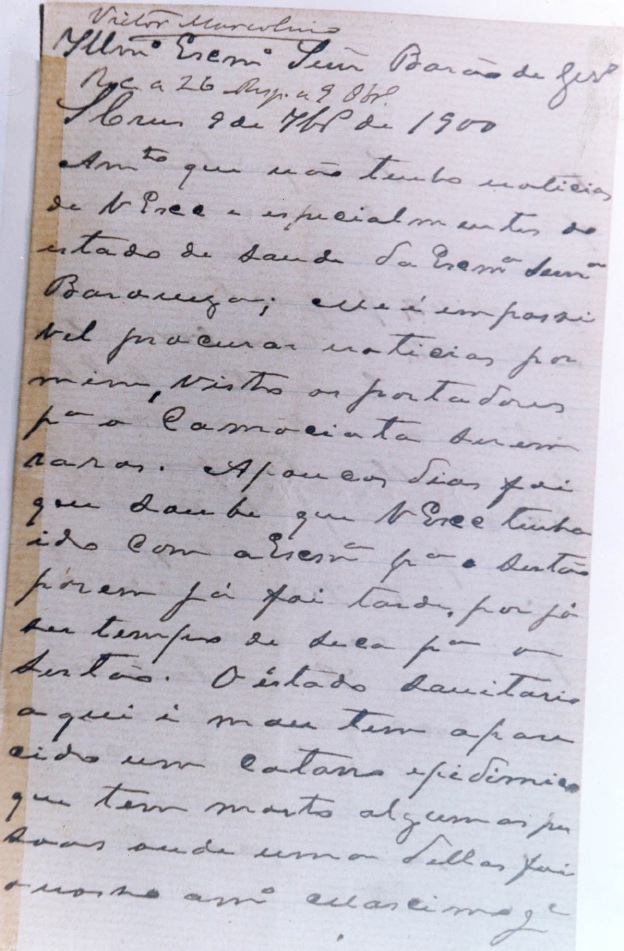 Victor Marcolino
Illmº Excmº Senr Barão de
Rec a 26 Resp a 9 8bro
9 de 7bro de 1900
que não tenho noticias
de V Excc e especialmentes do
estado de saude da Excmª Senrª
Baroneza; me é empossi
vel procurar noticias por
mim, visto os portadores
pª o Camociata serem
raros. A poucos dias foi
que soube que V Excc tinha
ido com a Excmª pª o Sertão
porem já foi tarde, por já
ser tempo de seca pª o
Sertão. O éstado sanitario
aqui é mau tem apare
cido um catarro epidimico
que tem morto algumas pes
soas onde uma dellas foi
o nosso amº